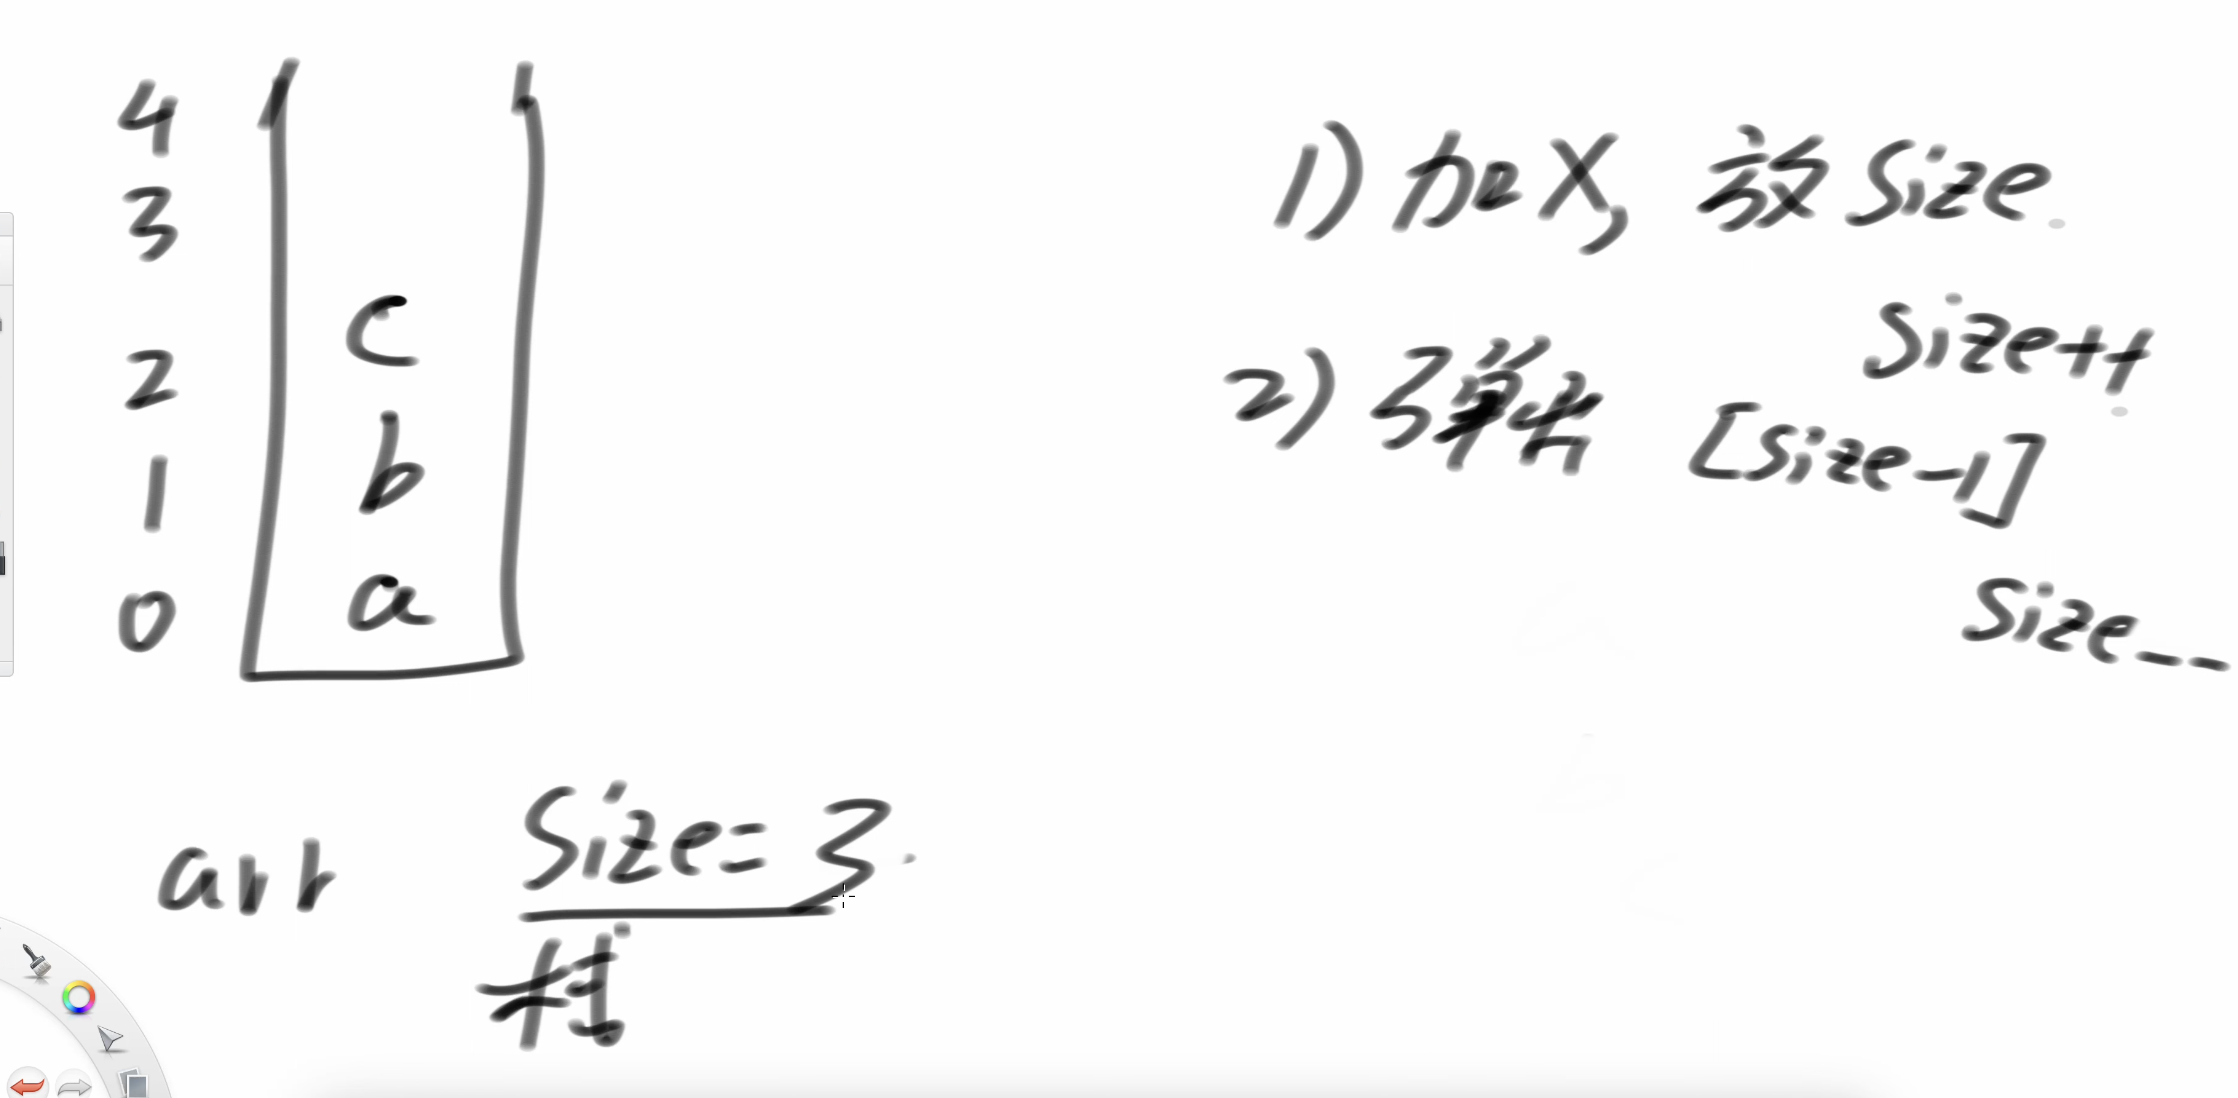 4
3
2 c
1 b
0 a
arr size=3
栈
1) 加X, 放 size
size++
2) 弹出 [size-1]
size--